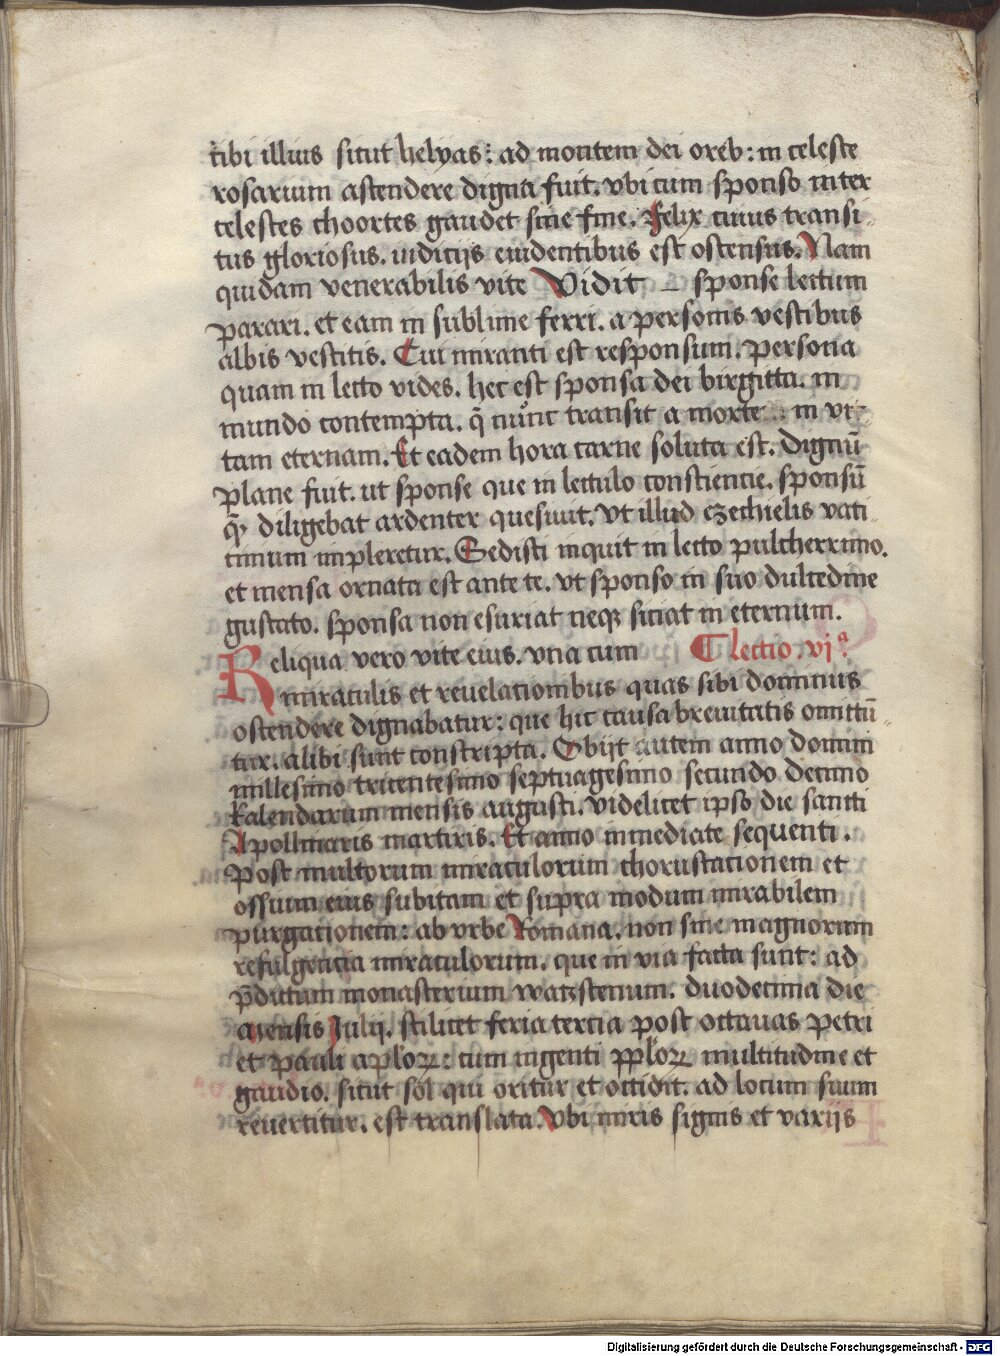 cibi illius sicut helyas: ad montem dei oreb: in celeste
rosarium ascendere digna fuit. vbi cum sponso inter
celestes choortes gaudet sine fine. Felix cuius transi-
tus gloriosus. iudicijs euidentibus est ostensus. Nam
quidam venerabilis vite Vidit sponse lectum
parari. et eam in sublime ferri. a personis vestibus
albis vestitis. Cui miranti est responsum. persona
quam in lecto vides. hec est sponsa dei birgitta. in
mundo contempta. q̄ nunc transit a morte in vi-
tam eternam. Et eadem hora carne soluta est. Dignū
plane fuit. ut sponse que in lectulo consciencie. sponsū
quē diligebat ardenter quesiuit. Vt illud ezechielis vati-
cinium impleretur. Sedisti inquit in lecto pulcherrimo.
et mensa ornata est ante te. vt sponso in suo dulcedine
gustato. sponsa non esuriat neqꝫ siciat in eternum.
Reliqua vero vite eius. vna cum ¶ lectio. vjᵃ.
miraculis et reuelacionibus quas sibi dominus
ostendere dignabatur: que hic causa breuitatis omittū-
tur. alibi sunt conscripta. Obijt autem anno domini
millesimo tricentesimo septuagesimo secundo decimo
kalendarum mensis augusti. videlicet ipso die sancti
Apollinaris martiris. Et anno inmediate sequenti.
Post multorum miraculorum choruscacionem et
ossium eius subitam et supra modum mirabilem
purgacionem: ab vrbe Romana. non sine magnorum
refulgencia miraculorum. que in via facta sunt: ad
p̄dictum monasterium watzstenum. duodecima die
mensis Julij. scilicet feria tercia post octauas petri
et pauli aplorꝝ: cum ingenti pplorꝝ multitudine et
gaudio. sicut sol qui oritur et occidit. ad locum suum
reuertitur. est translata. Vbi miris signis et varijs
Digitalisierung gefördert durch die Deutsche Forschungsgemeinschaft - DFG